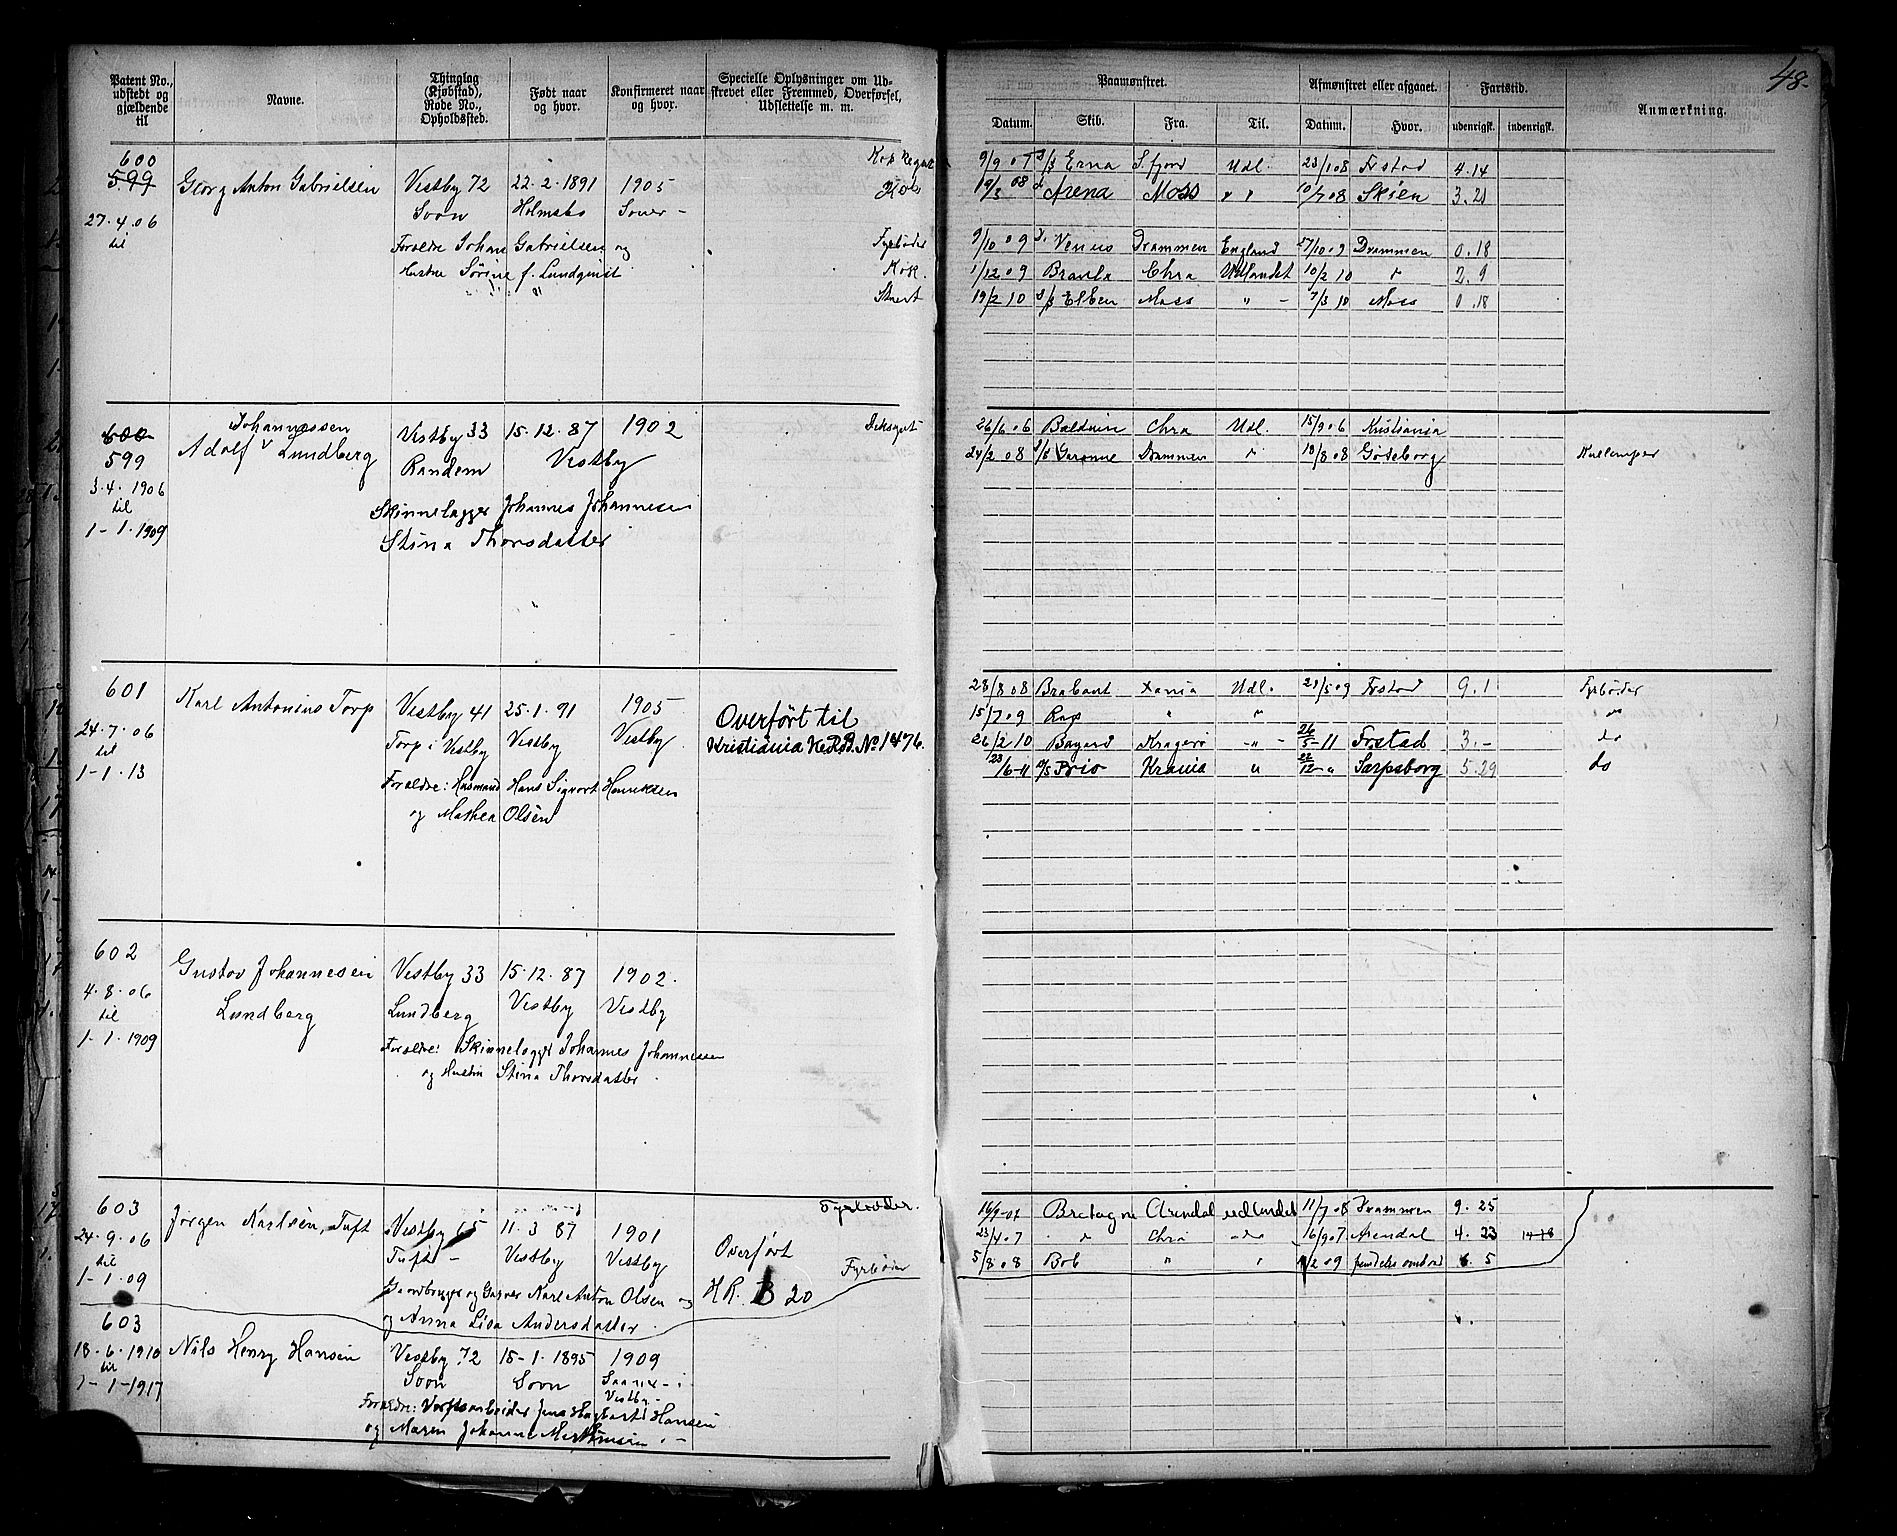 48.
Patent No., udstedt og gjældende til
Navne.
Thinglag (Kjøbstad), Rode No., Opholdssted.
Født naar og hvor.
Konfirmeret naar og hvor.
Specielle Oplysninger om Udskrevet eller Fremmed, Overførsel, Udslettelse m. m.
Paamønstret.
Afmønstret eller afgaaet.
Fartstid.
Anmærkning.
Datum. Skib. Fra. Til. Datum. Hvor. udenrigsk. indenrigsk.
600
599
27.4.06
til
Georg Anton Gabrielsen
Vestby 72 22.2.1891 1905
Soon Holmsbo
Forældre Johan Gabrielsen og
Hustru Sørine f. Lundqvist
Kok
Fyrbøder
Kok.
9/9 07 s/s Erna S.fjord Udl. 23/1 08 Frstad 4.14
19/3 08 Arena Moss " " 10/7 08 Skien 3.21
9/10 09 Venus Drammen England 27/10 09 Drammen 0.18
1/12 09 Chra Udlandet 10/2 10 " 2.9
19/2 10 s/s Elben Moss " - 7/3 10 Moss 0.18
600
599
3.4.1906
til
1-1.1909
Johannessen
Adolf v Lundberg
Vestby 33 15.12.87 1902
Randem Vestby
Skinnelægger Johannes Johannesen
Stina Thorsdatter
26/6 06 Baldwin Chra Udl. 15/9 06 Kristiania
24/2 08 s/s Garonne Drammen " 18/8 08 Göteborg
Kullemper
601
24.7.06
til
1-1.13
Karl Antonius Torp
Vestby 41 25.1.91 1905
Torp i Vestby Vestby Vestby
Forældre: Husmand Hans Sigvart Henriksen
og Mathea Olsen
Overført til
Kristiania No. 1476.
28/8 08 Brabant Xania Udl. 29/5 09 Frstad 9.1 Fyrbøder
15/7 09 Rap " " do
26/2 10 Bayard Kragerø - " - 26/5-11 Frstad 3.- do
23/6-11 s/s Brio Krania " 22/12 " Sarpsborg 5.29 do
602
4.8.06
til
1-1.1909
Gustav Johannesen
Lundberg
Vestby 33 15.12.87 1902.
Lundberg Vestby Vestby
Forældre: Skinnelægger Johannes Johannessen
og Hustru Stina Thorsdatter.
603
24.9.06
til
1-1.09
Jørgen Karlsen, Tuft
Vestby 65 11.3.87 1901
Tuft - Vestby Vestby
Gaardbruger og Karl Anton Olsen og
og Anna Lisa Andersdatter.
Overført
HR. B 20
Fyrbøder.
Fyrbøder
16/9-07 Bretagne Arendal udlandet 11/7 08 Drammen 9.25
23/4 07 " Chra " do 16/9 07 Arendal 4.23
5/8 08 Bob " " 1/2 09 fremdeles ombord 5
603
18.6.1910
til
1-1-1917
Nils Henry Hansen
Vestby 72 15-1.1895 1909
Soon Soon
Vestby -
Forældre: Verftsarbeider Jens Hagbart Hansen
og Maren Johanne